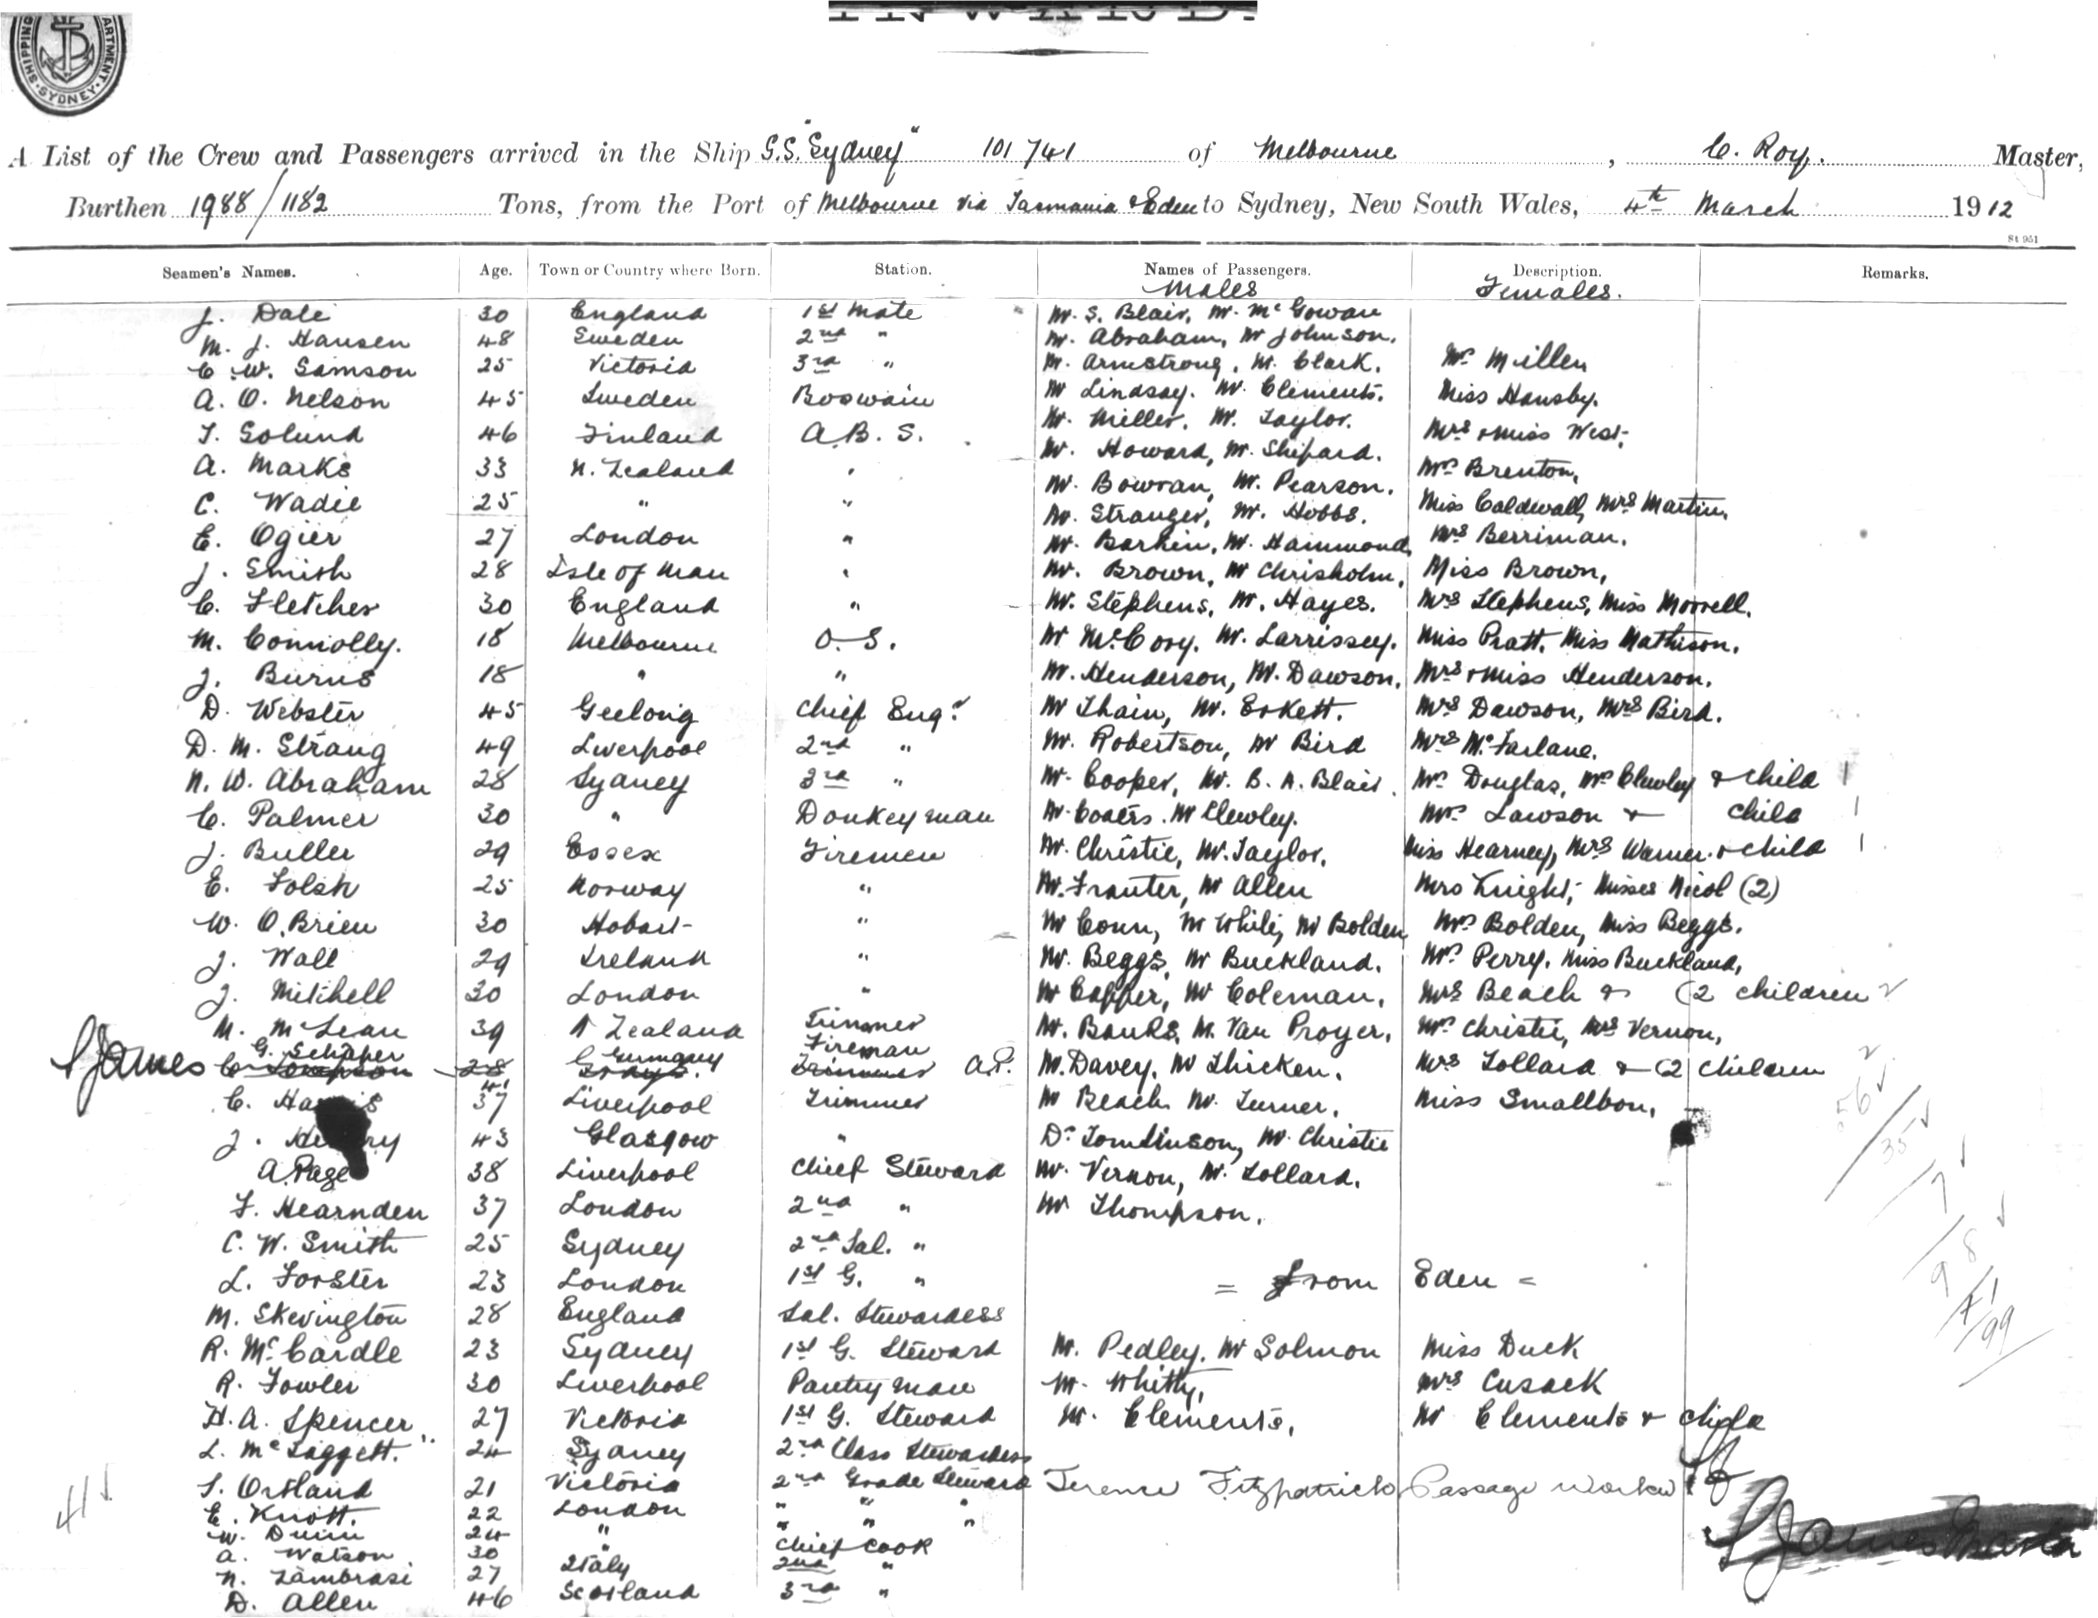 SHIPPING DEPARTMENT SYDNEY
INWARD.
A List of the Crew and Passengers arrived in the Ship S.S. "Sydney" 101741 of Melbourne, C. Roy. Master,
Burthen 1988/1182 Tons, from the Port of Melbourne via Tasmania & Eden to Sydney, New South Wales, 4th March 1912
St 951
Seamen's Names. Age. Town or Country where Born. Station. Names of Passengers. Description. Remarks.
Males Females.
J. Dale 30 England 1st Mate Mr. S. Blair, Mr. McGowan
M. J. Hansen 48 Sweden 2nd " Mr. Abraham, Mr Johnson.
C. W. Samson 25 Victoria 3rd " Mr. Armstrong, Mr. Clark. Mrs Millen
A. O. Nelson 45 Sweden Boswain Mr Lindsay. Mr. Clements. Miss Hansby.
T. Golund 46 Finland A.B.S. Mr. Miller, Mr. Taylor. Mrs & Miss West.
A. Marks 33 N. Zealand " Mr. Howard, Mr. Shipard. Mrs Brenton,
C. Wadie 25 " " Mr. Bowran, Mr. Pearson. Miss Caldwall, Mrs Martin,
E. Ogier 27 London " Mr. Stranger, Mr. Hobbs. Mrs Berriman.
J. Smith 28 Isle of Man " Mr. Barkin, Mr. Hammond, Miss Brown,
C. Fletcher 30 England " Mr. Brown, Mr Chrisholm, Mrs Stephens, Miss Morrell.
M. Connolly. 18 Melbourne O.S. Mr. Stephens, Mr. Hayes. Miss Pratt, Miss Mathison.
J. Burns 18 " " Mr McCovy. Mr. Larrissey. Mrs & Miss Henderson.
D. Webster 45 Geelong Chief Engr Mr. Henderson, Mr. Dawson. Mrs Dawson, Mrs Bird.
D. M. Strang 49 Liverpool 2nd " Mr Thain, Mr. Eskett. Mrs McFarlane.
N. W. Abraham 28 Sydney 3rd " Mr. Robertson, Mr Bird Mrs Douglas, Mrs Clewley & child 1
C. Palmer 30 " Donkeyman Mr. Cooper, Mr. B. A. Blair. Mrs Lawson & child 1
J. Buller 29 Essex Firemen Mr. Coaters. Mr Clewley. Miss Hearney, Mrs Warner & child 1
E. Folsh 25 Norway " Mr. Christie, Mr. Taylor. Mrs Knight, Misses Nicol (2)
W. O.Brien 30 Hobart " Mr. Franter, Mr Allen Mrs Bolden, Miss Beggs.
J. Wall 29 Ireland " Mr Conn, Mr White, Mr Bolden Mrs Perry. Miss Buckland,
J. Mitchell 30 London " Mr. Beggs, Mr Buckland. Mrs Beach & (2 children 2
M. McLean 39 N Zealand Trimmer Mr Capper, Mr Coleman, Mrs Christie, Mrs Vernon,
G. Schaper 41 Germany Fireman Mr. Banks, Mr. Van Proyer, Mrs Tollard & (2 children 2
SJames C. Thompson 28 Grays. Trimmer A.P. Mr. Davey, Mr Thicken. Miss Smallbon,
C. Harris 37 Liverpool Trimmer Mr Beach Mr. Turner.
J. 43 Glasgow " Dr Tomlinson, Mr. Christie
A. Page 38 Liverpool Chief Steward Mr. Vernon, Mr. Tollard.
F. Hearnden 37 London 2nd " Mr Thompson.
C. W. Smith 25 Sydney 2nd Sal. "
L. Forster 23 London 1st G. " = from Eden =
M. Skevington 28 England Sal. Stewardess
R. McCardle 23 Sydney 1st G. Steward Mr. Pedley. Mr Solmon Miss Duck
R. Fowler 30 Liverpool Pantryman Mr. Whitty, Mrs Cusack
H. A. Spencer 27 Victoria 1st G. Steward Mr. Clements, Mr Clements & child
L. McTaggett. 24 Sydney 2nd Class Stewardess
S. Ortland 21 Victoria 2nd Grade Steward Terence Fitzpatrick Passage Worker
E. Knott. 22 London " " "
W. Dunn 24 " " " "
A. Watson 30 " Chief Cook
N. Zambrasi 27 Italy 2nd "
D. Allen 46 Scotland 3rd "
56
35
7
98
1
99
41
SJames